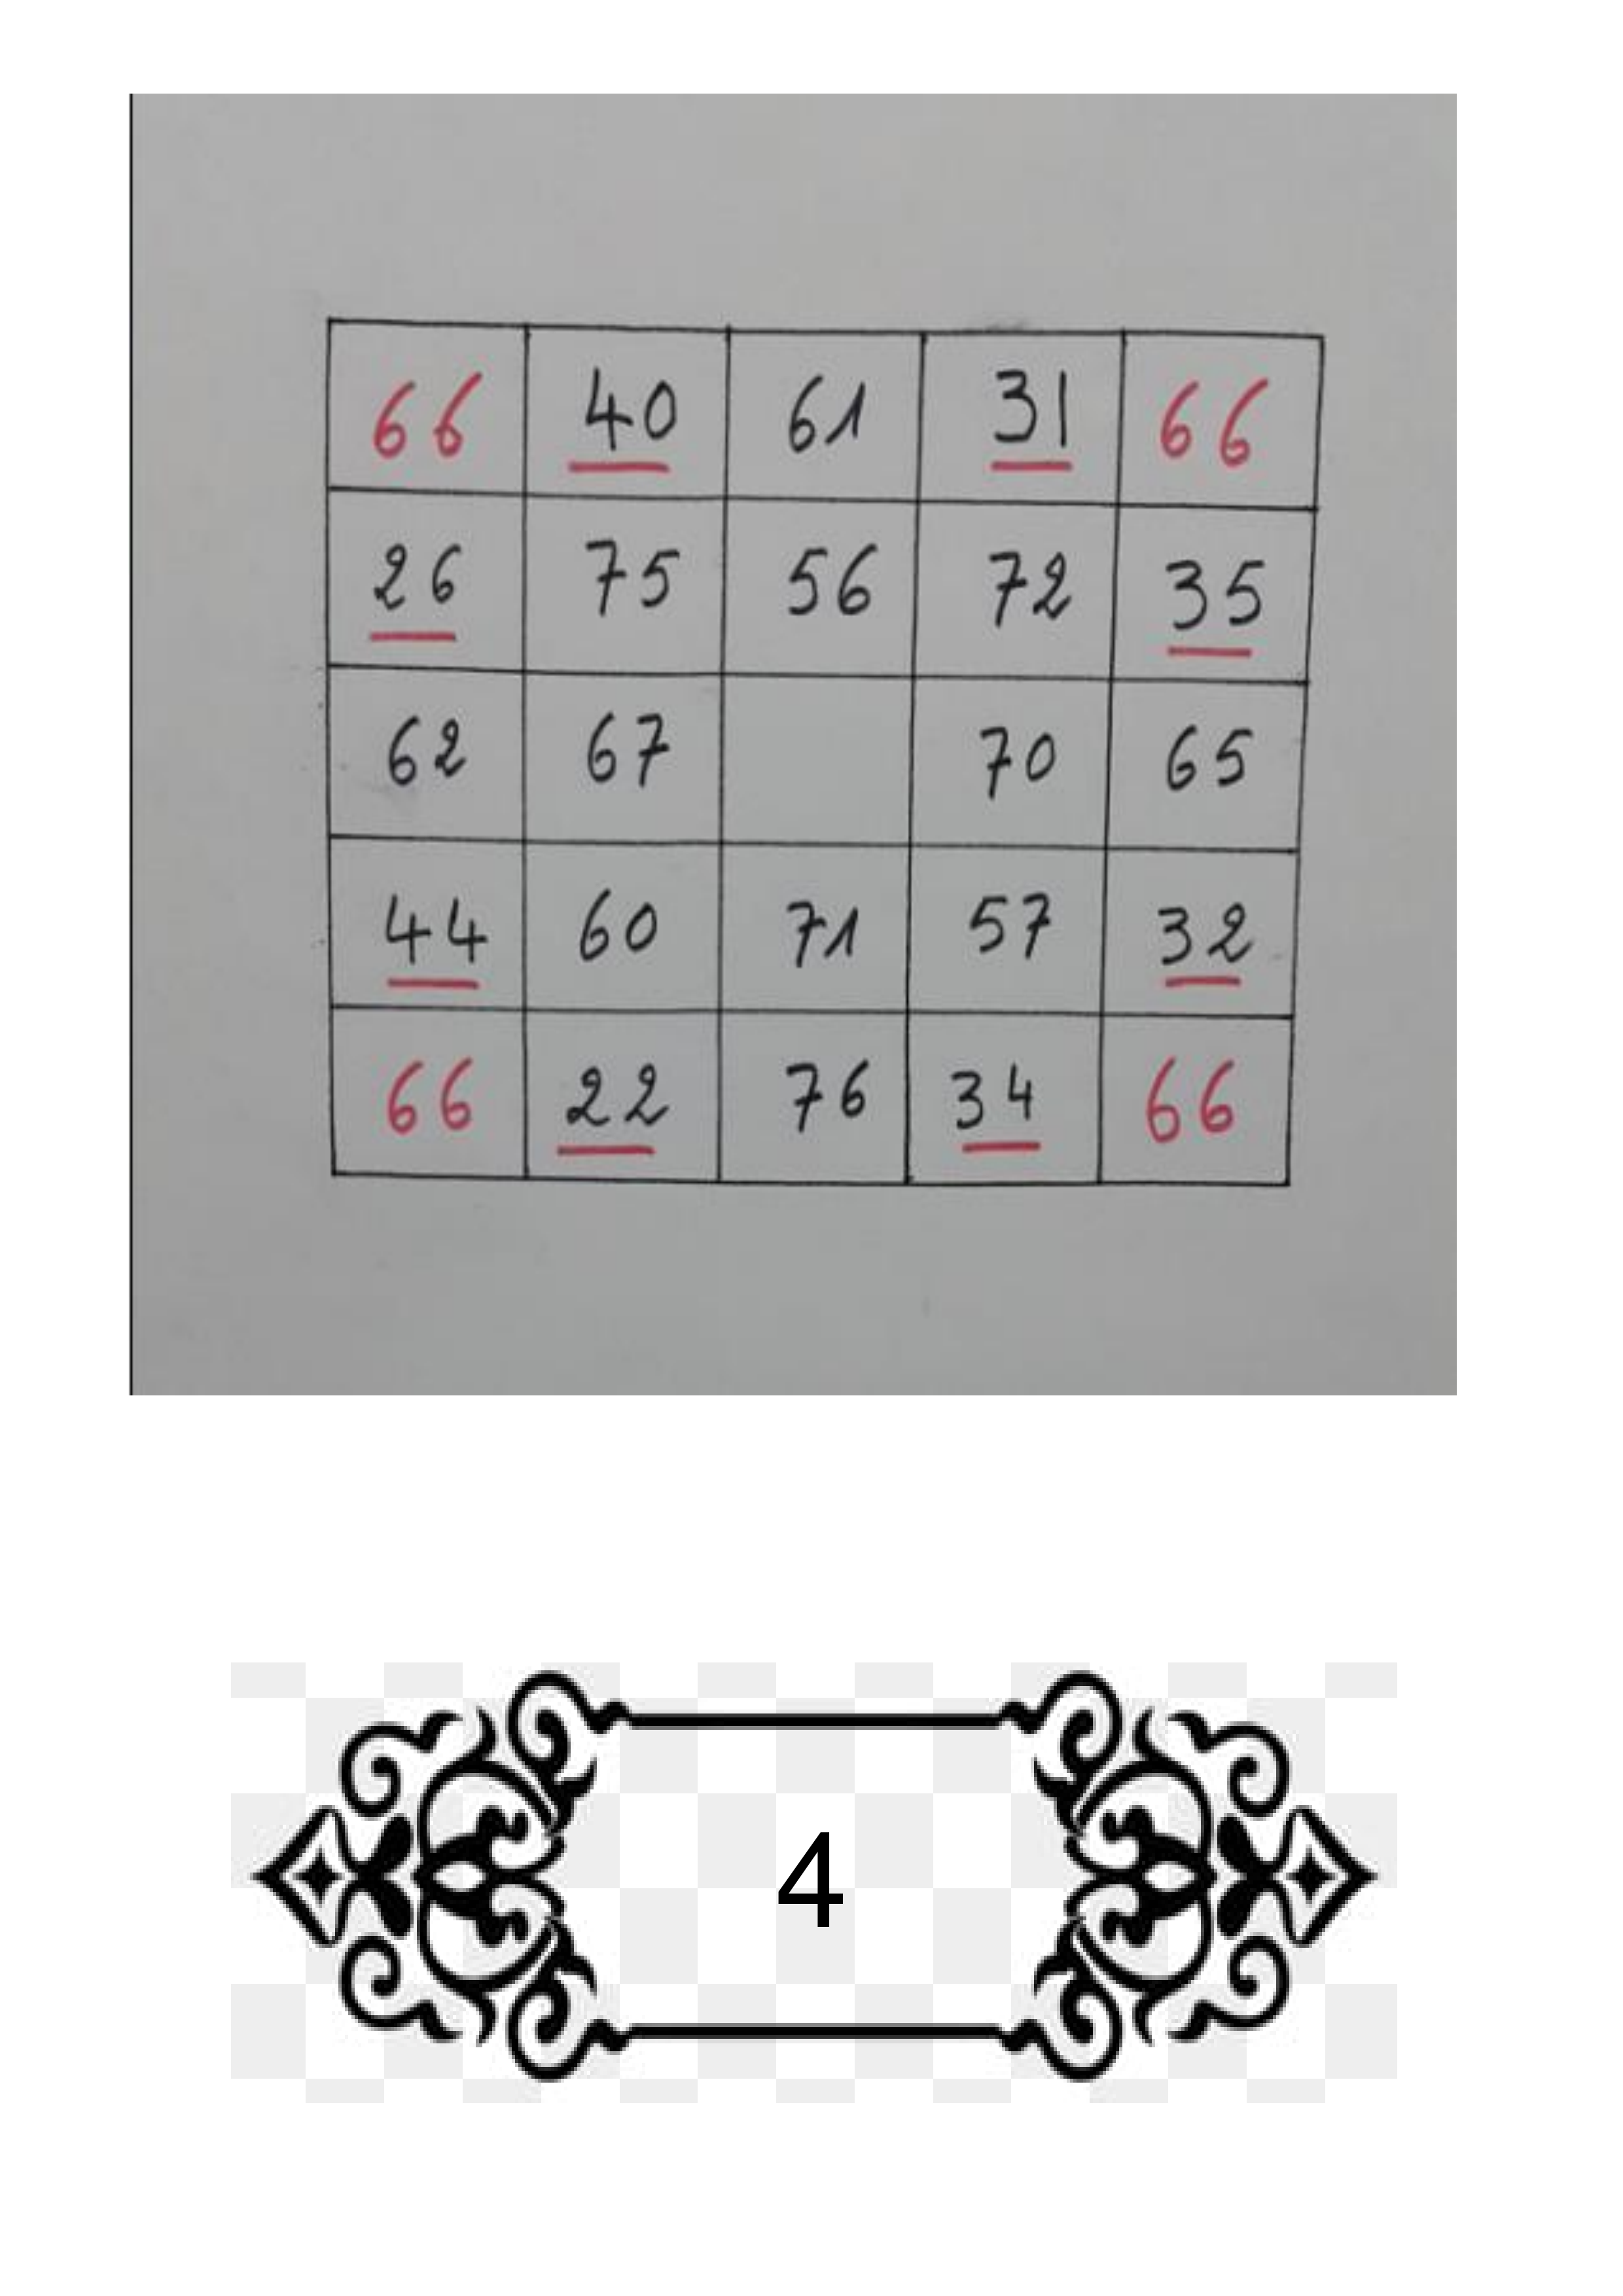 66 40 61 31 66
26 75 56 72 35
62 67 70 65
44 60 71 57 32
66 22 76 34 66
4